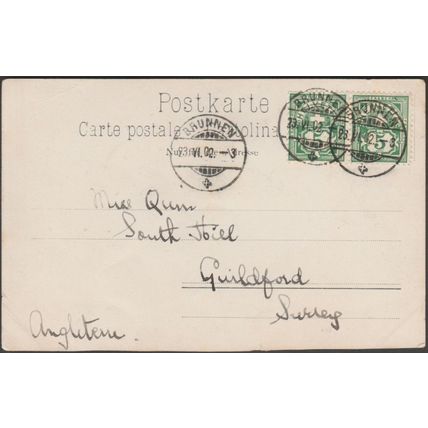 Postkarte
Carte postale
BRUNNEN
23. VI. 02. – 3
BRUNNEN
23. VI. 02. – 8
5
Miss Quin
South Hill
Guildford
Surrey
Angleterre.